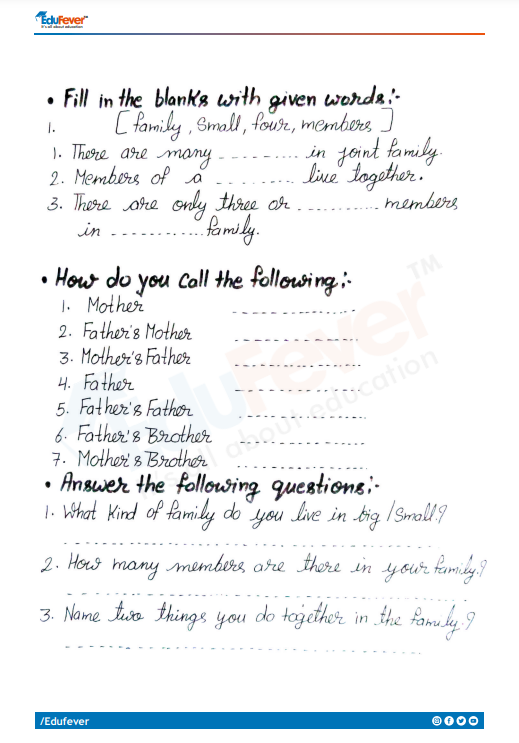 EduFever™
It's all about education
• Fill in the blanks with given words:-
1. [family, small, four, members]
1. There are many - - - - - - - - - in joint family.
2. Members of a - - - - - - - - - live together.
3. There are only three or - - - - - - - - - - members
in - - - - - - - - - - - family.
• How do you call the following:-
1. Mother - - - - - - - - - - - - - -
2. Father's Mother - - - - - - - - - - - - - -
3. Mother's Father - - - - - - - - - - - - - -
4. Father - - - - - - - - - - - - - -
5. Father's Father - - - - - - - - - - - - - -
6. Father's Brother - - - - - - - - - - - - - -
7. Mother's Brother - - - - - - - - - - - - - -
• Answer the following questions:-
1. What kind of family do you live in big/small?
- - - - - - - - - - - - - - - - - - - - - - - - - - - - - - - - - - - -
2. How many members are there in your family?
- - - - - - - - - - - - - - - - - - - - - - - - - - - - - - - - - - - -
3. Name two things you do together in the family?
- - - - - - - - - - - - - - - - - - - - - - - - - - - - - - - - - - - -
EduFever™
It's all about education
/Edufever